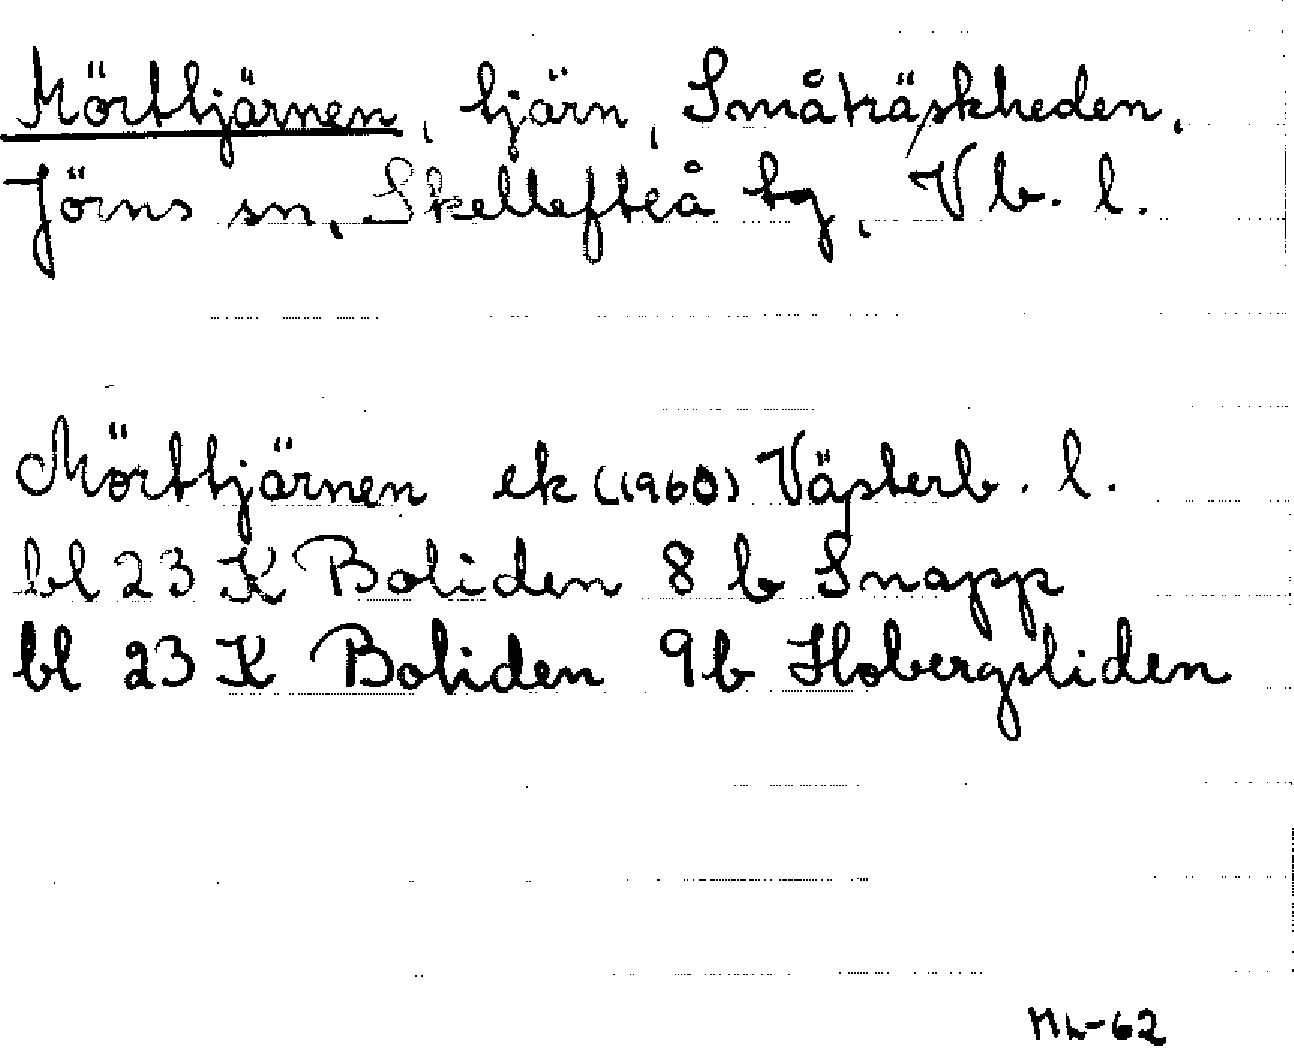 Mörttjärnen, tjärn, Småträskheden,
Jörns sn, Skellefteå tg, Vb. l.
Mörttjärnen ek (1960) Västerb. l.
bl 23 K Boliden 8 b Snapp
bl 23 K Boliden 9b Hobergsliden
-62